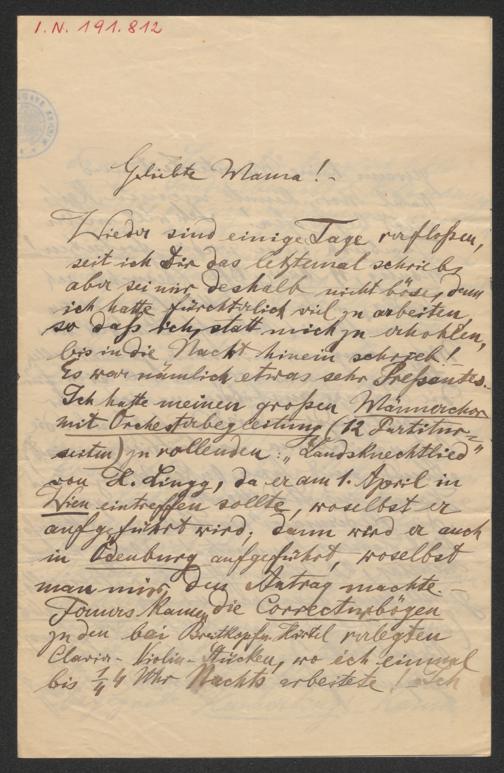 I.N. 191.812
Geliebte Mama! -
Wieder sind einige Tage verfloßen,
seit ich Dir das letztemal schrieb,
aber sei mir deshalb nicht böse, denn
ich hatte fürchterlich viel zu arbeiten,
so daß ich, statt mich zu erholen,
bis in die Nacht hinein schrieb! -
Es war nämlich etwas sehr Pressantes.
Ich hatte meinen großen Männerchor
mit Orchesterbegleitung (12 Partitur-
seiten) zu vollenden: "Landsknechtlied"
von H. Lingg, da er am 1. April in
Wien eintreffen sollte, woselbst er
aufgeführt wird; dann wird er auch
in Ödenburg aufgeführt, woselbst
man mir, den Antrag machte. -
Ferners kamen die Correcturbögen
zu den bei Breitkopf u. Härtel verlegten
Clavier- Violin- Stücken, wo ich einmal
bis 1/4 4 Uhr Nachts arbeitete! - Ich